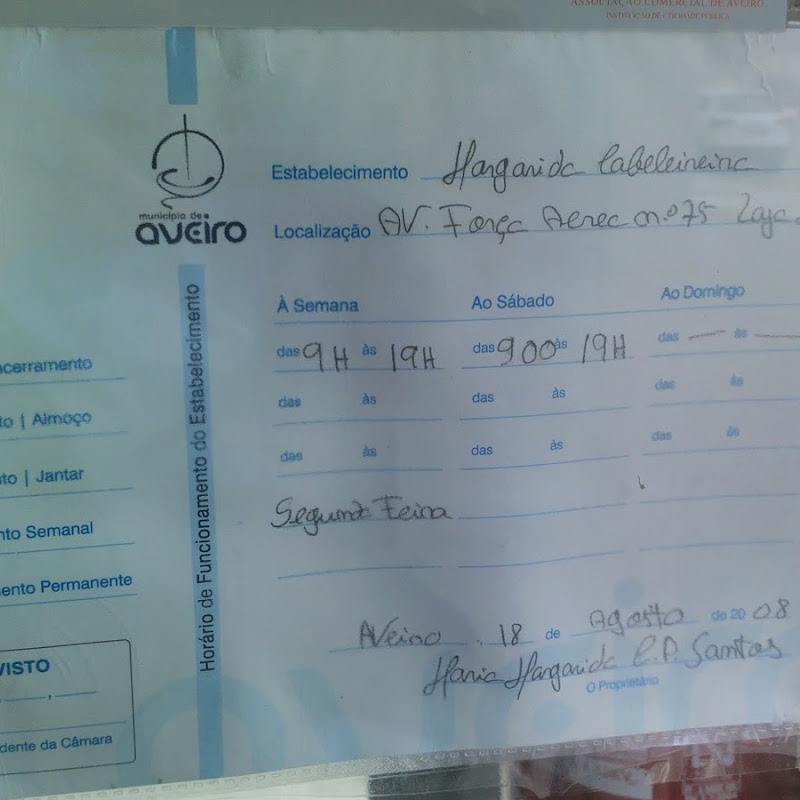 ASSOCIAÇÃO COMERCIAL DE AVEIRO
INSTITUIÇÃO DE UTILIDADE PÚBLICA
município de
aveiro
Horário de Funcionamento do Estabelecimento
Estabelecimento Margarida Cabeleireira
Localização AV. Força Aerea n.º 75 Loja
À Semana Ao Sábado Ao Domingo
das 9H às 19H das 900 às 19H das — às —
das às das às das às
das às das às das às
Segunda Feira
Aveiro, 18 de Agosto de 2008
Maria Margarida C.P. Santos
O Proprietário
ncerramento
to | Almoço
nto | Jantar
nto Semanal
ento Permanente
VISTO
dente da Câmara